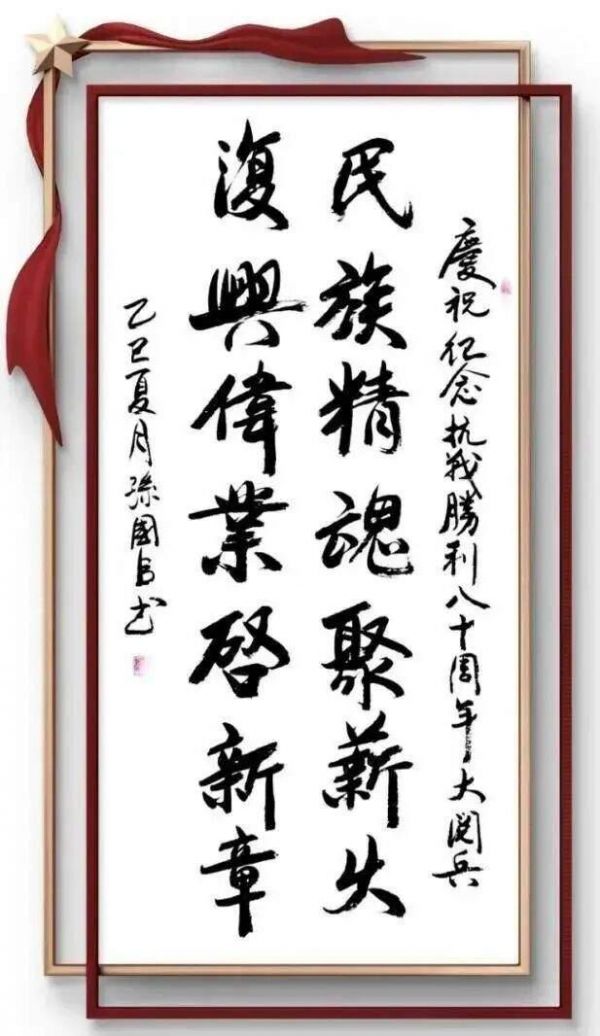 慶祝纪念抗战勝利八十周年大阅兵
民族精魂聚薪火
復興偉業啓新章
乙巳夏月孫國昌书